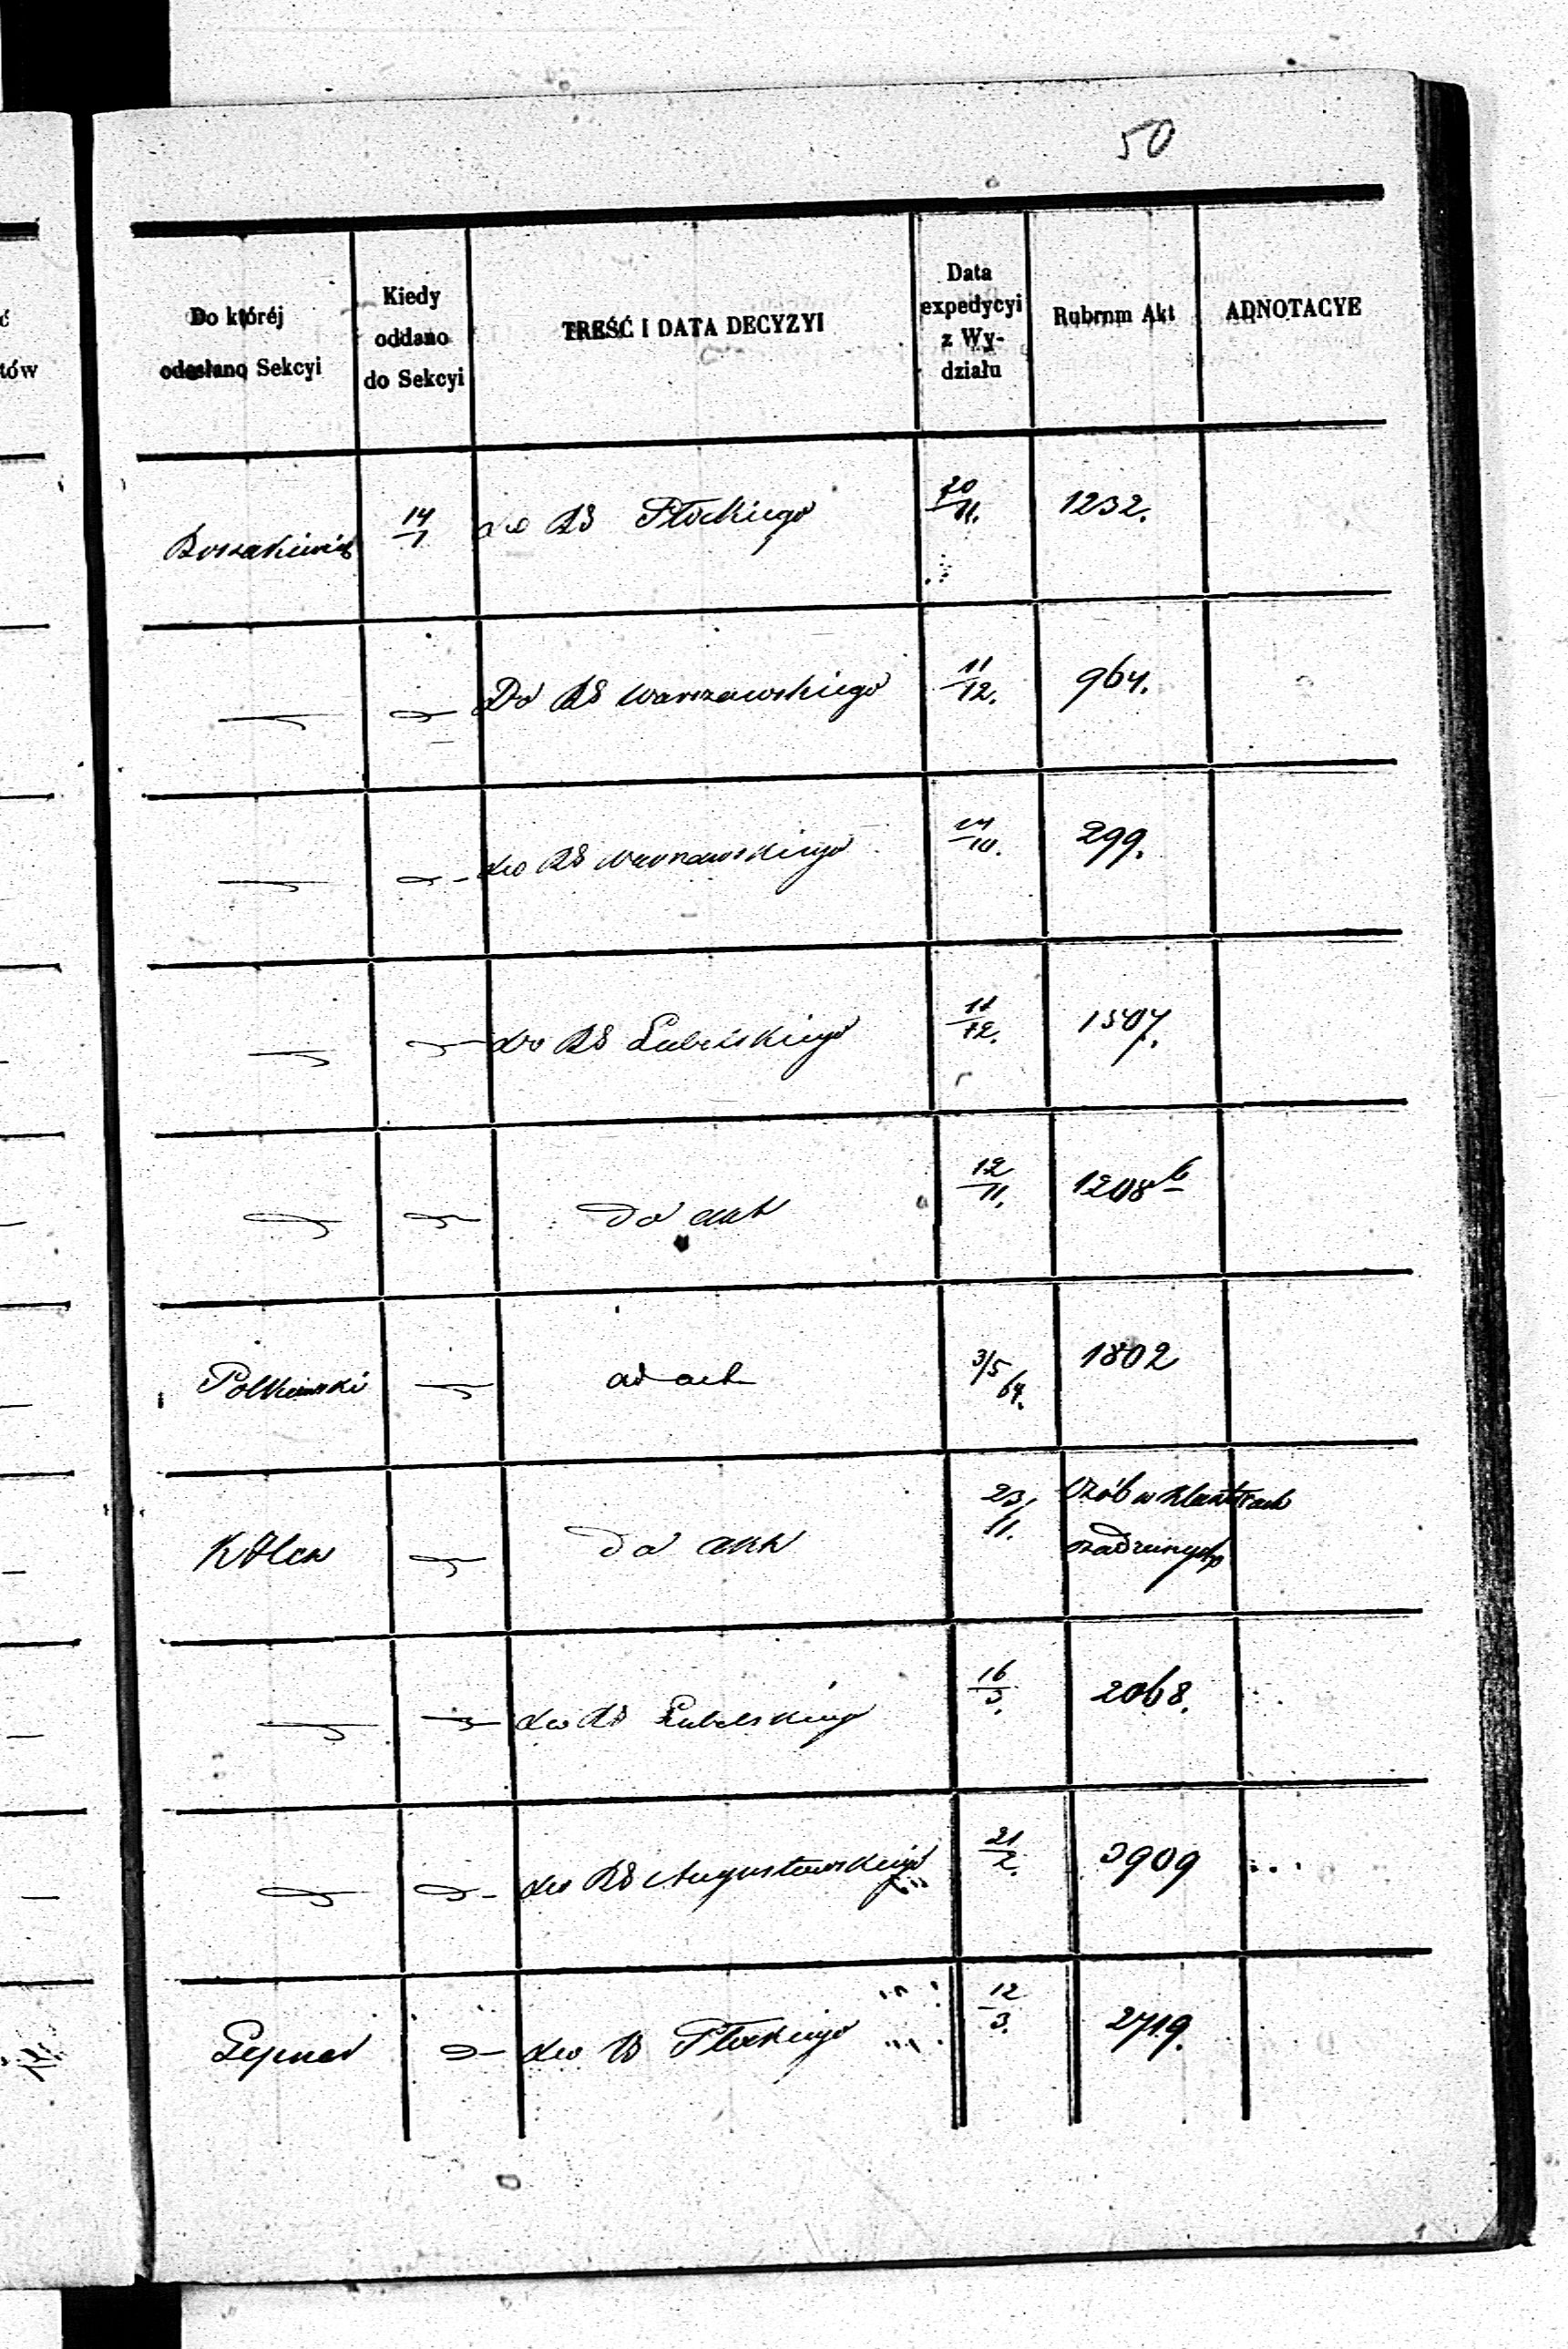 50
Do któréj
odesłano Sekcyi
Kiedy
oddano
do Sekcyi
TREŚĆ I DATA DECYZYI
Data
expedycyi
z Wy-
działu
Rubrum Akt
ADNOTACYE
14/1
do RS Płockiego
20/11.
1232.
Do RS Warszawskiego
11/12.
964.
do RS
/10.
299.
do RS Lubelskiego
11/12.
1507.
do akt
12/11.
1208 b
ad act
3/5 64.
1802
do akt
23/11.
Osób w Klasztorach
osadzonych
do RS Lubelskiego
16/3.
2068.
do RS Augustowskiego
21/2.
3909
do Płockiego
12/3.
2719.